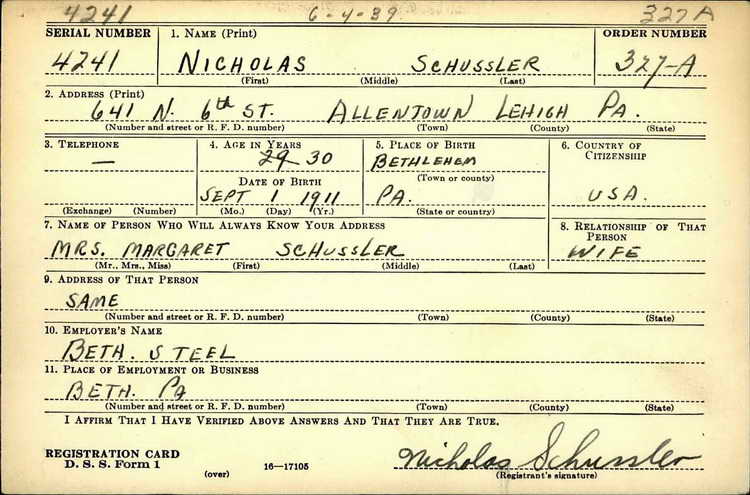 4241 6-4-39 327A
SERIAL NUMBER 1. NAME (Print) ORDER NUMBER
4241 NICHOLAS SCHUSSLER 327-A
(First) (Middle) (Last)
2. ADDRESS (Print)
641 N. 6th ST. ALLENTOWN LEHIGH PA.
(Number and street or R. F. D. number) (Town) (County) (State)
3. TELEPHONE 4. AGE IN YEARS 5. PLACE OF BIRTH 6. COUNTRY OF CITIZENSHIP
— 29 30 BETHLEHEM
DATE OF BIRTH (Town or county)
SEPT 1 1911 PA. USA.
(Exchange) (Number) (Mo.) (Day) (Yr.) (State or country)
7. NAME OF PERSON WHO WILL ALWAYS KNOW YOUR ADDRESS 8. RELATIONSHIP OF THAT PERSON
MRS. MARGARET SCHUSSLER WIFE
(Mr., Mrs., Miss) (First) (Middle) (Last)
9. ADDRESS OF THAT PERSON
SAME
(Number and street or R. F. D. number) (Town) (County) (State)
10. EMPLOYER'S NAME
BETH. STEEL
11. PLACE OF EMPLOYMENT OR BUSINESS
BETH. PA
(Number and street or R. F. D. number) (Town) (County) (State)
I AFFIRM THAT I HAVE VERIFIED ABOVE ANSWERS AND THAT THEY ARE TRUE.
REGISTRATION CARD
D. S. S. Form 1 Nicholas Schussler
(over) 16—17105 (Registrant's signature)